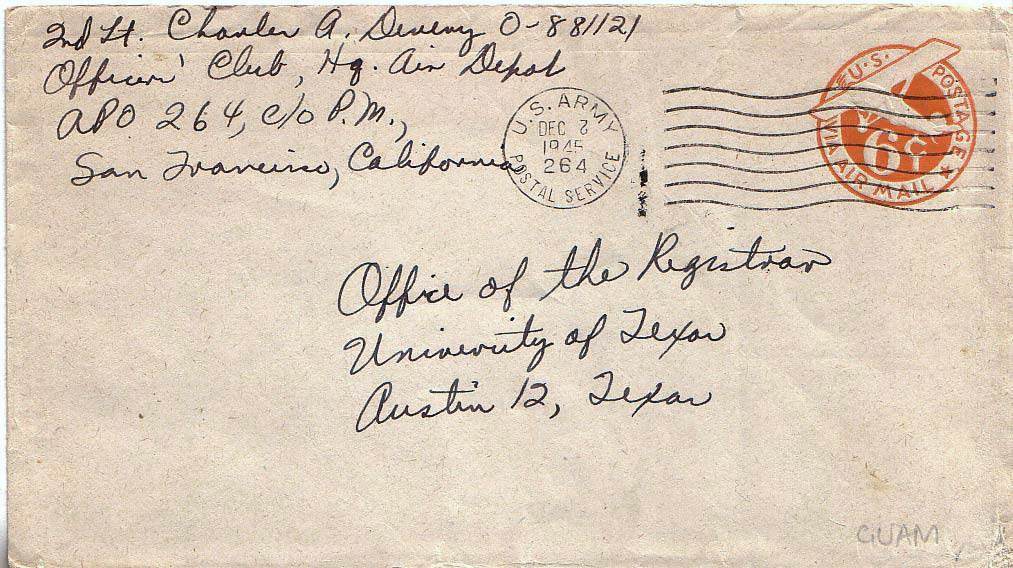 2nd Lt. Charles A. Deveny O-881121
Officers' Club, Hq. Air Depot
APO 264, c/o P.M.,
San Francisco, California
U.S. ARMY
DEC 2
1945
264
POSTAL SERVICE
U.S. POSTAGE
6¢
VIA AIR MAIL
Office of the Registrar
University of Texas
Austin 12, Texas
GUAM